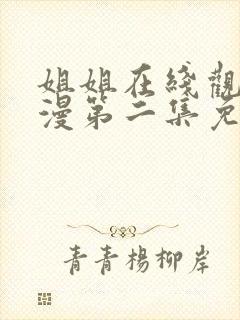 姐姐在綫觀
漫第二集免
青青楊柳岸